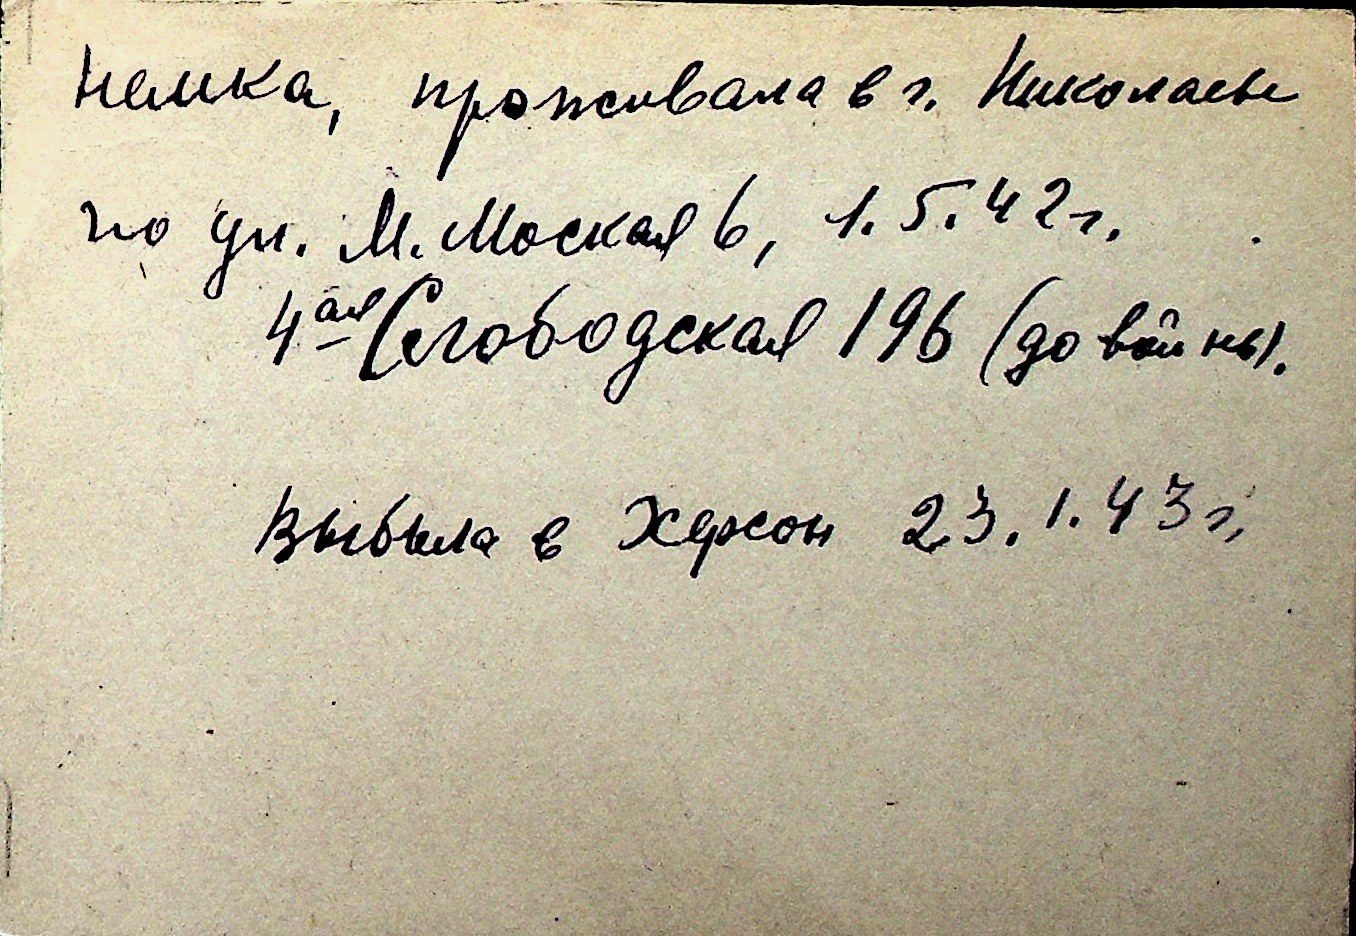 Немка, проживала в г. Николаеве
по ул. М. Моская 6, 1.5.42 г.
4ая Слободская 196 (до войны).
Выбыла в Херсон 23.1.43 г.